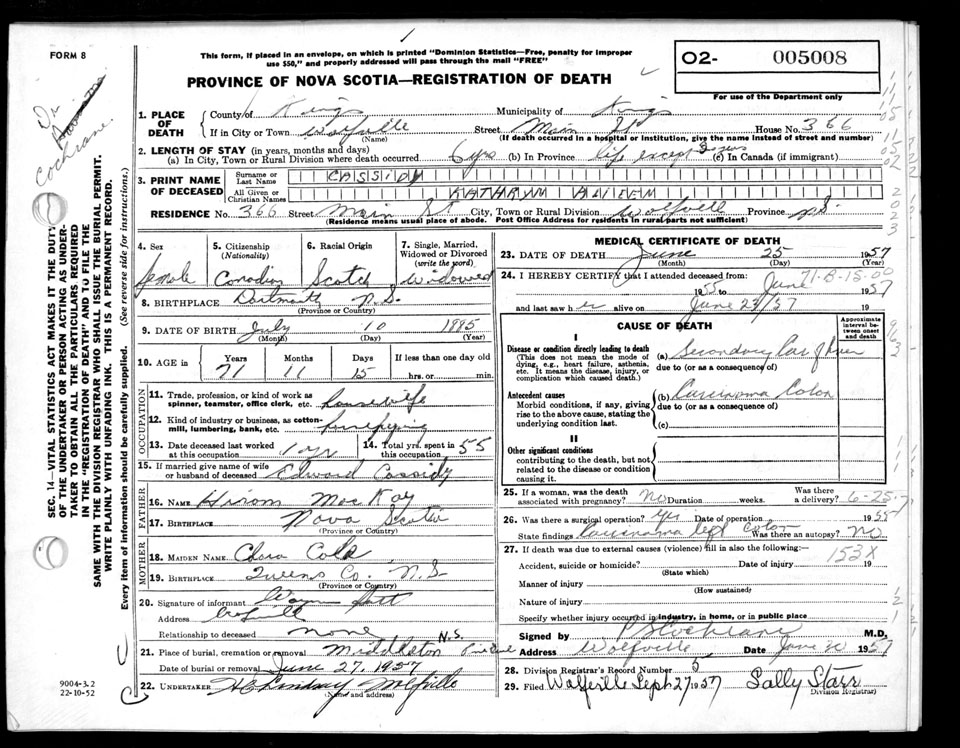 FORM 8
This form, if placed in an envelope, on which is printed "Dominion Statistics—Free, penalty for improper
use $50," and properly addressed will pass through the mail "FREE"
PROVINCE OF NOVA SCOTIA—REGISTRATION OF DEATH
02- 005008
For use of the Department only
Dr
Cochrane
SEC. 14—VITAL STATISTICS ACT MAKES IT THE DUTY
OF THE UNDERTAKER OR PERSON ACTING AS UNDER-
TAKER TO OBTAIN ALL THE PARTICULARS REQUIRED
IN THE "REGISTRATION OF DEATH" AND TO FILE THE
SAME WITH THE DIVISION REGISTRAR WHO SHALL ISSUE THE BURIAL PERMIT.
WRITE PLAINLY WITH UNFADING INK. THIS IS A PERMANENT RECORD.
Every item of information should be carefully supplied. (See reverse side for instructions.)
1. PLACE OF DEATH
County of Kings Municipality of Kings
If in City or Town Wolfville Street Main St House No. 366
(Name) (If death occurred in a hospital or institution, give the name instead of street and number)
2. LENGTH OF STAY (in years, months and days)
(a) In City, Town or Rural Division where death occurred 6 yrs (b) In Province life except 3 years (c) In Canada (if immigrant)
3. PRINT NAME OF DECEASED
Surname or Last Name CASSIDY
All Given or Christian Names KATHRYN
RESIDENCE No. 366 Street Main St City, Town or Rural Division Wolfville Province N.S.
(Residence means usual place of abode. Post Office Address for residents in rural parts not sufficient)
4. Sex female
5. Citizenship (Nationality) Canadian
6. Racial Origin Scotch
7. Single, Married, Widowed or Divorced (write the word) widowed
8. BIRTHPLACE Dartmouth N.S.
(Province or Country)
9. DATE OF BIRTH July 10 1885
(Month) (Day) (Year)
10. AGE in Years 71 Months 11 Days 15 If less than one day old hrs. or min.
OCCUPATION
11. Trade, profession, or kind of work as spinner, teamster, office clerk, etc. housewife
12. Kind of industry or business, as cotton-mill, lumbering, bank, etc.
13. Date deceased last worked at this occupation 1 yr 14. Total yrs. spent in this occupation 55
15. If married give name of wife or husband of deceased Edward Cassidy
FATHER
16. NAME Hiram MacKay
17. BIRTHPLACE Nova Scotia
(Province or Country)
MOTHER
18. MAIDEN NAME Clara Cole
19. BIRTHPLACE Queens Co. N.S.
(Province or Country)
20. Signature of informant
Address Wolfville
Relationship to deceased none
21. Place of burial, cremation or removal Middleton N.S.
Date of burial or removal June 27, 1957
22. UNDERTAKER Lindsay Wolfville
(Name and address)
9004-3.2
22-10-52
MEDICAL CERTIFICATE OF DEATH
23. DATE OF DEATH June 25 1957
(Month) (Day) (Year)
24. I HEREBY CERTIFY that I attended deceased from:
71-8-15-00
1955 to June 1957
and last saw her alive on June 23/57 19
CAUSE OF DEATH
Approximate interval between onset and death
I
Disease or condition directly leading to death
(This does not mean the mode of dying, e.g., heart failure, asthenia, etc. It means the disease, injury, or complication which caused death.)
(a) Secondary Ca of liver
due to (or as a consequence of)
Antecedent causes
Morbid conditions, if any, giving rise to the above cause, stating the underlying condition last.
(b) Carcinoma Colon
due to (or as a consequence of)
(c)
II
Other significant conditions
contributing to the death, but not related to the disease or condition causing it.
25. If a woman, was the death associated with pregnancy? no Duration weeks. Was there a delivery? 6-25-7
26. Was there a surgical operation? yes Date of operation 1955
State findings Carcinoma left Colon Was there an autopsy? no
27. If death was due to external causes (violence) fill in also the following:—
153X
Accident, suicide or homicide? Date of injury 19
(State which)
Manner of injury
(How sustained)
Nature of injury
Specify whether injury occurred in industry, in home, or in public place
Signed by Cochrane M.D.
Address Wolfville Date June 30 1957
28. Division Registrar's Record Number 5
29. Filed Wolfville Sept 27 1957 Sally Starr
Division Registrar